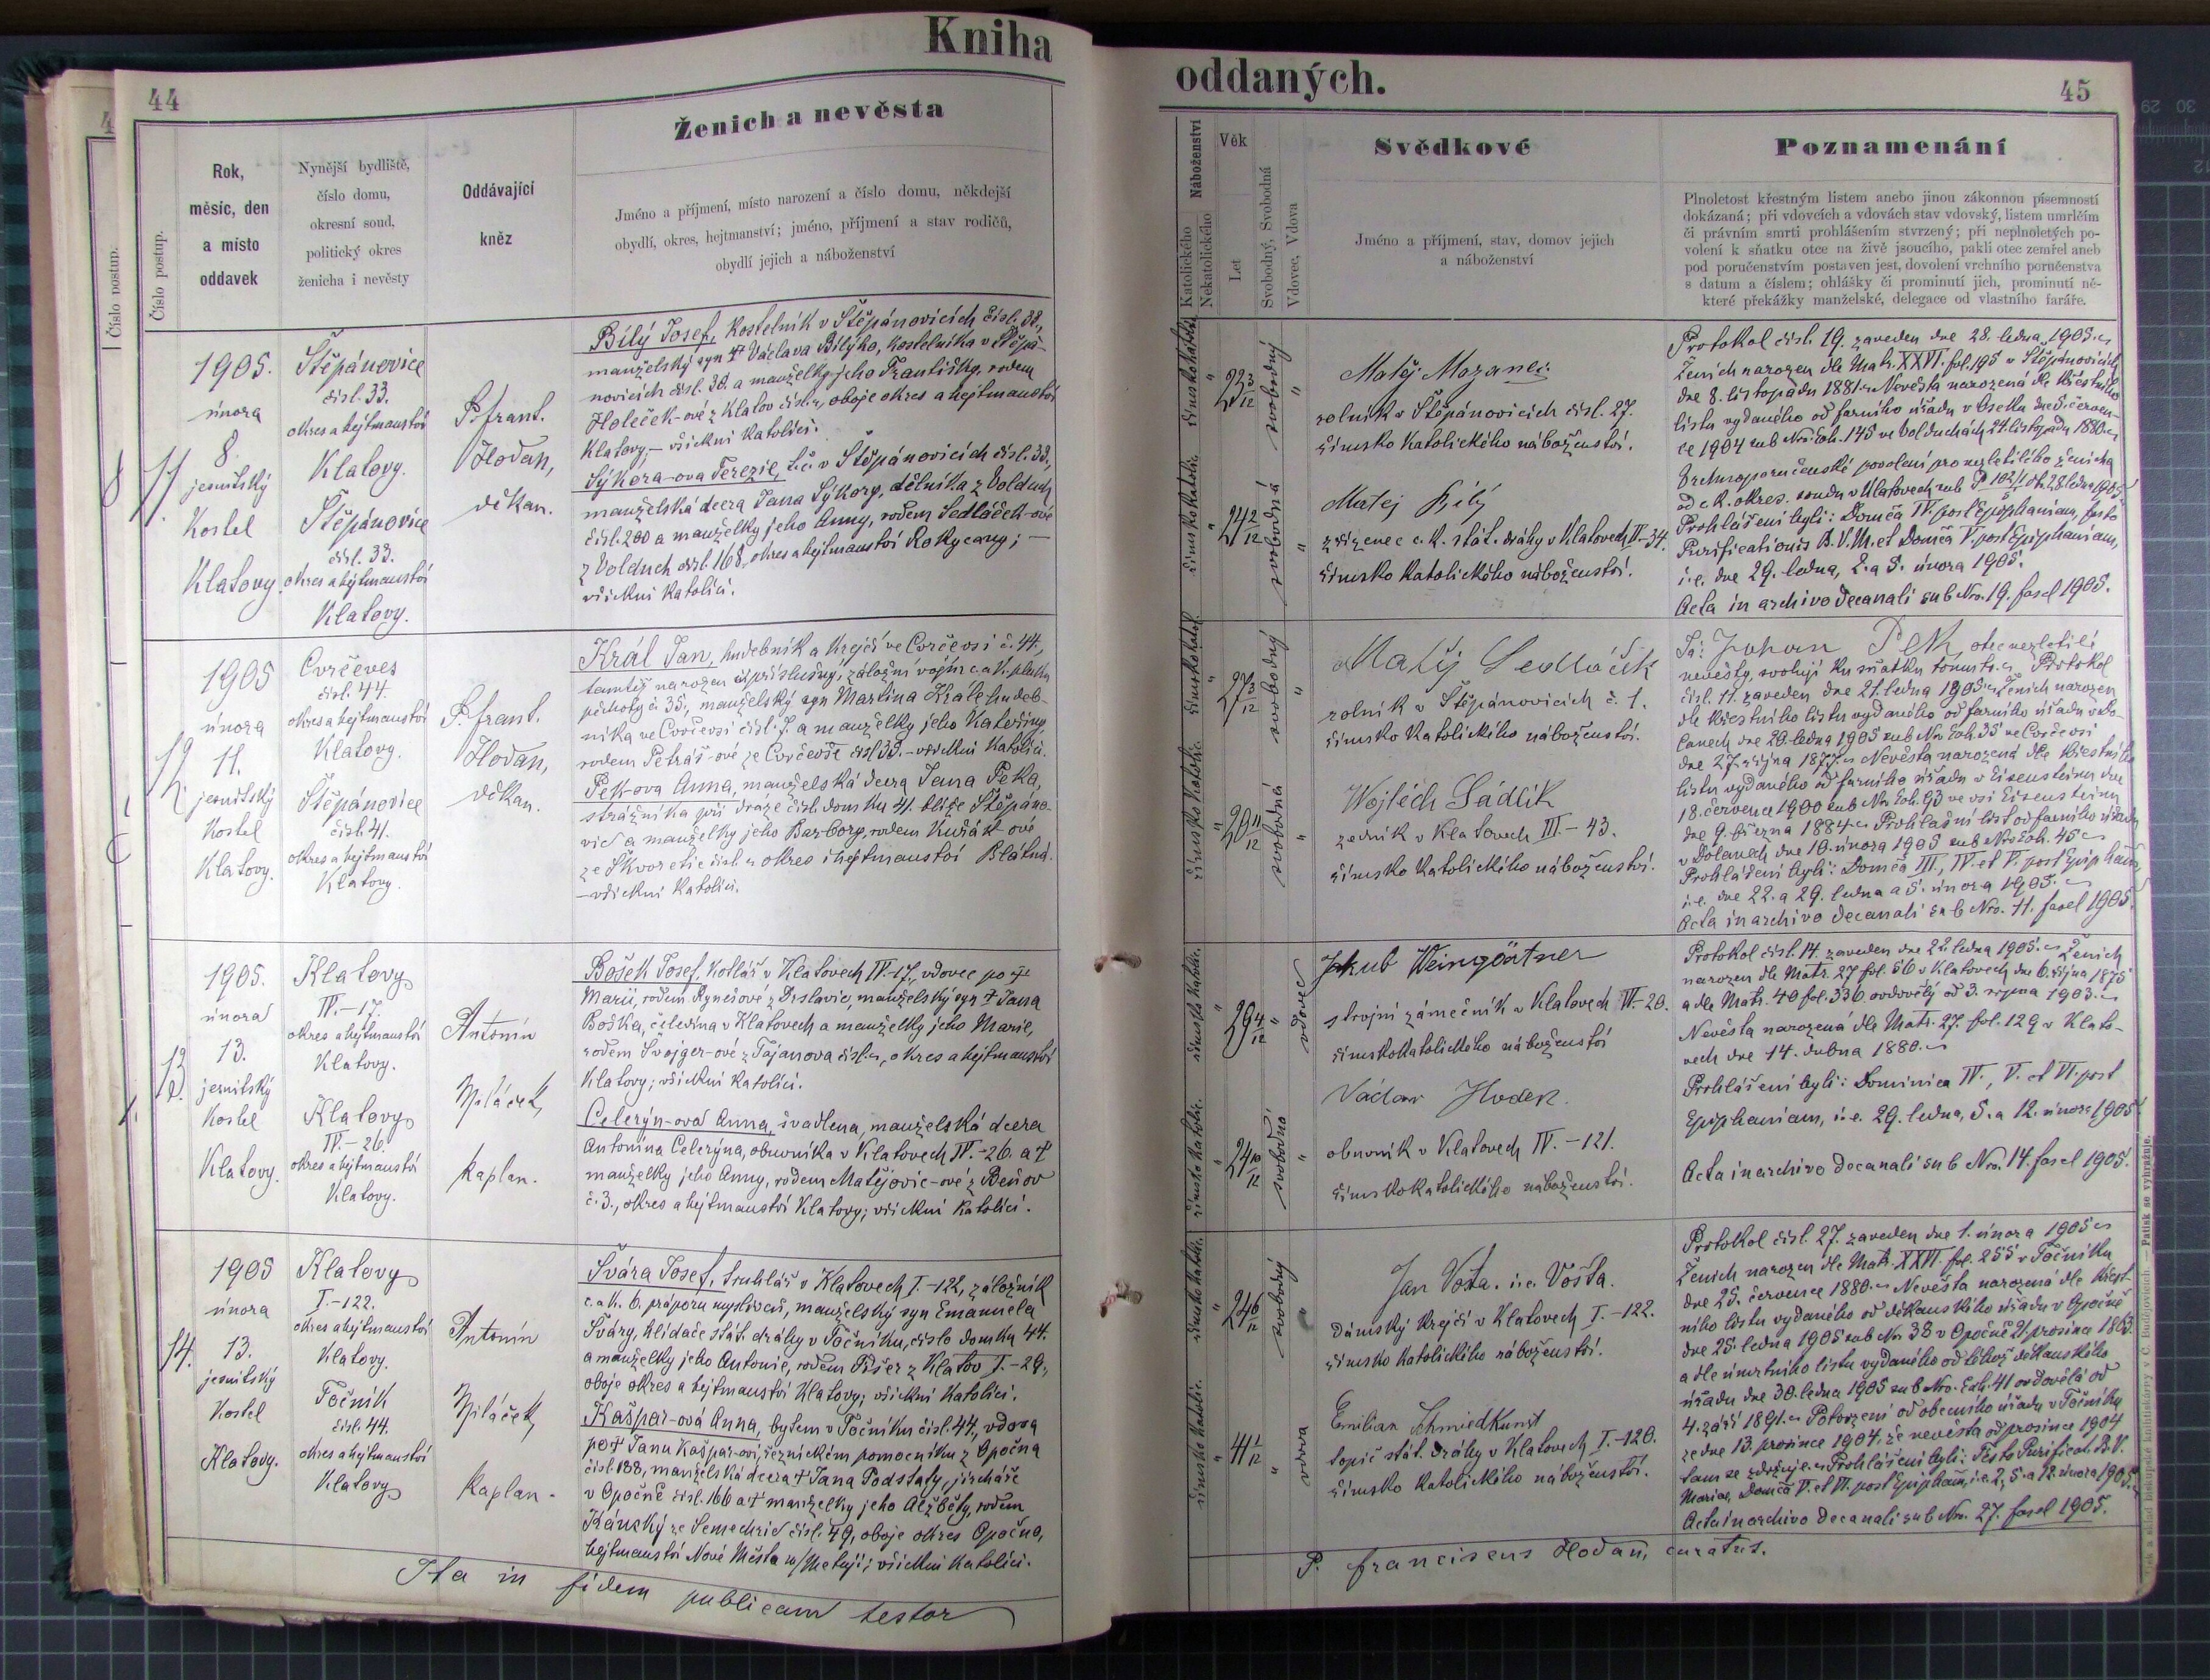 Kniha
44
Číslo postup.
Číslo postup.
Rok,
měsíc, den
a místo
oddavek
Nynější bydliště,
číslo domu,
okresní soud,
politický okres
ženicha i nevěsty
Oddávající
kněz
Ženich a nevěsta
Jméno a příjmení, místo narození a číslo domu, někdejší
obydlí, okres, hejtmanství; jméno, příjmení a stav rodičů,
obydlí jejich a náboženství
11.
1905.
února
8.
jesuitský
Kostel
Klatovy.
Štěpánovice
čísl. 33.
okres a hejtmanství
Klatovy.
Štěpánovice
čísl. 33.
okres a hejtmanství
Klatovy.
P. frant.
Hoďan,
děkan.
Bílý Josef, kostelník v Štěpánovicích čísl. 38.,
manželský syn † Václava Bílýho, kostelníka v Štěpá-
novicích čísl. 38. a manželky jeho Františky, rodem
Holeček-ové z Klatov čísl. „, oboje okres a hejtmanství
Klatovy, – všickni katolíci.
Sýkora-ova Terezie, t.č. v Štěpánovicích čísl. 33.,
manželská dcera Jana Sýkory, dělníka z Volduch
čísl. 200 a manželky jeho Anny, rodem Sedláček-ové
z Volduch čísl. 168, okres a hejtmanství Rokycany; –
všickni katolíci.
12.
1905
února
11.
jesuitský
Kostel
Klatovy.
Cvrčeves
čísl. 44.
okres a hejtmanství
Klatovy.
Štěpánovice
čísl. 41.
okres a hejtmanství
Klatovy.
P. frant.
Hoďan,
děkan.
Král Jan, hudebník a krejčí ve Cvrčevsi č. 44.,
tamtéž narozen i příslušný, záložní vojín c. a k. pluku
pěchoty č. 35, manželský syn Martina Krále, hudeb-
níka ve Cvrčevsi čísl. 7. a manželky jeho Kateřiny,
rodem Petráš-ové ze Cvrčevse čísl. 39. – všickni katolíci.
Pek-ova Anna, manželská dcera Jana Peka,
strážníka při dráze čísl. domku 41. blíže Štěpáno-
vic a manželky jeho Barbory, rodem
ze Škvoretic čísl. „ okres i hejtmanství Blatná.
– všickni katolíci.
13.
1905.
února
13.
jesuitský
Kostel
Klatovy.
Klatovy
IV.-17.
okres a hejtmanství
Klatovy.
Klatovy
IV.-26.
okres a hejtmanství
Klatovy.
Antonín
Špláček,
kaplan.
Bošek Josef, kotlář v Klatovech IV.-17., vdovec po †
Marii, rodem z Drslavic, manželský syn † Jana
Boška, čeledína v Klatovech a manželky jeho Marie,
rodem Švojger-ové z Tajanova čísl. „, okres a hejtmanství
Klatovy; všickni katolíci.
Celerýn-ova Anna, švadlena, manželská dcera
Antonína Celerýna, obuvníka v Klatovech IV.-26. a †
manželky jeho Anny, rodem Matějovic-ové z Beňov
č. 3., okres a hejtmanství Klatovy; všickni katolíci.
14.
1905
února
13.
jesuitský
Kostel
Klatovy.
Klatovy
I.-122.
okres a hejtmanství
Klatovy.
Točník
čísl. 44.
okres a hejtmanství
Klatovy
Antonín
Špláček,
kaplan.
Švára Josef, truhlář v Klatovech I.-122, záložník
c. a k. 6. práporu myslivců, manželský syn Emanuela
Šváry, hlídače stát. dráhy v Točníku, číslo domku 44.
a manželky jeho Antonie, rodem Fišer z Klatov I.-29.,
oboje okres a hejtmanství Klatovy; všickni katolíci.
Kašpar-ová Anna, bytem v Točníku čísl. 44., vdova
po † Janu Kašpar-ovi, řeznickém pomocníku z Opočna
čísl. 188, manželská dcera † Jana Podstaty, jircháře
v Opočně čísl. 166 a † manželky jeho Alžběty, rodem
Kánský ze Semechnic čísl. 49, oboje okres Opočno,
hejtmanství Nové Město n/Metují; všickni katolíci.
Ita in fidem publicam testor
oddaných.
45
Náboženství
Katolického
Nekatolického
Věk
Let
Svobodný, Svobodná
Vdovec, Vdova
Svědkové
Jméno a příjmení, stav, domov jejich
a náboženství
Poznamenání
Plnoletost křestným listem anebo jinou zákonnou písemností
dokázaná; při vdovcích a vdovách stav vdovský, listem umrlčím
či právním smrti prohlášením stvrzený; při neplnoletých po-
volení k sňatku otce na živě jsoucího, pakli otec zemřel aneb
pod poručenstvím postaven jest, dovolení vrchního poručenstva
s datum a číslem; ohlášky či prominutí jich, prominutí ně-
které překážky manželské, delegace od vlastního faráře.
římsko katolic.
23 3/12
svobodný
římsko katolic.
24 2/12
svobodná
Matěj Mozanec
rolník v Štěpánovicích čísl. 27.
římsko katolického náboženství.
Matej Bílý
zřízenec c. k. stát. dráhy v Klatovech IV.-34.
římsko katolického náboženství.
Protokol čísl. 19. zaveden dne 28. ledna 1905.
Ženich narozen dle Matr. XXVI. fol. 195 v Štěpánovicích
dne 8. listopadu 1881. Nevěsta narozená dle křestního
listu vydaného od farního úřadu v Oseku dne 5. červen-
ce 1904 sub Nro. Exh. 145 ve Volduchách 24. listopadu 1880.
Vrchnoporučenské povolení pro nezletilého ženicha
od c. k. okres. soudu v Klatovech sub P 102/1 dto. 28. ledna 1905.
Prohlášeni byli: Domca IV. post Epiphaniam, festo
Purificationis B. V. M. et Domca V. post Epiphaniam,
i. e. dne 29. ledna, 2. a 5. února 1905.
Acta in archivo decanali sub Nro. 19. fascl 1905.
římsko katol.
27 3/12
svobodný
římsko katolic.
20 11/12
svobodná
Matěj Sedláček
rolník v Štěpánovicích č. 1.
římsko katolického náboženství.
Wojtěch Sádlík
zedník v Klatovech III.-43.
římsko katolického náboženství.
Já: Johan Pek, otec nezletilé
nevěsty, svoluji ku sňatku tomuto. Protokol
čísl. 11. zaveden dne 21. ledna 1905. Ženich narozen
dle křestního listu vydaného od farního úřadu v Do-
lanech dne 20. ledna 1905 sub Nro Exh. 35 ve Cvrčevsi
dne 27. října 1877. Nevěsta narozená dle křestního
listu vydaného od farního úřadu v Eisensteinu dne
18. července 1900 sub Nro. Exh. 93 ve vsi Eisensteinu
dne 9. března 1884. Prohlašní list od farního úřadu
v Dolanech dne 10. února 1905 sub Nro Exh. 45
Prohlášeni byli: Domca III., IV. et V. post Epiphan.,
i. e. dne 22. a 29. ledna a 5. února 1905.
Acta in archivo decanali sub Nro. 11. fascl 1905.
římsko katolic.
29 4/12
vdovec
římsko katolic.
24 10/12
svobodná
Jakub Weingärtner
strojní zámečník v Klatovech IV.-20.
římskokatolického náboženství
Václav Hodek.
obuvník v Klatovech IV.-121.
římskokatolického náboženství.
Protokol čísl. 14. zaveden dne 22. ledna 1905. Ženich
narozen dle Matr. 27 fol. 56 v Klatovech dne 6. října 1875
a dle Matr. 40 fol. 336. ovdovělý od 3. října 1903.
Nevěsta narozená dle Matr. 27. fol. 129 v Klato-
vech dne 14. dubna 1880.
Prohlášeni byli: Dominica IV., V. et VI. post
Epiphaniam, i. e. 29. ledna, 5. a 12. února 1905.
Acta in archivo decanali sub Nro. 14. fascl 1905.
římsko katolic.
24 6/12
svobodný
římsko katolic.
41 1/12
vdova
Jan Vota. i. e. Vošta.
dámský krejčí v Klatovech I.-122.
římsko katolického náboženství.
Emilian Schmiedkunst
topič stát. dráhy v Klatovech I.-120.
římsko katolického náboženství.
Protokol čísl. 27. zaveden dne 1. února 1905
Ženich narozen dle Matr. XXVI. fol. 255 v Točníku
dne 25. července 1880. Nevěsta narozená dle křest-
ního listu vydaného od děkanského úřadu v Opočně
dne 25. ledna 1905 sub Nro. 38 v Opočně 21. prosince 1863.
a dle úmrtního listu vydaného od téhož děkanského
úřadu dne 30. ledna 1905 sub Nro. Exh. 41 ovdovělá od
4. září 1891. Potvrzení od obecního úřadu v Točníku
ze dne 13. prosince 1904. že nevěsta od prosince 1904
tam se zdržuje. Prohlášeni byli: Festo Purificat. B. V.
Mariae, Domca V. et VI. post Epiphan., i. e. 2., 5. a 12. února 1905.
Acta in archivo decanali sub Nro. 27. fascl 1905.
P. franciscus Hoďan, curatus.